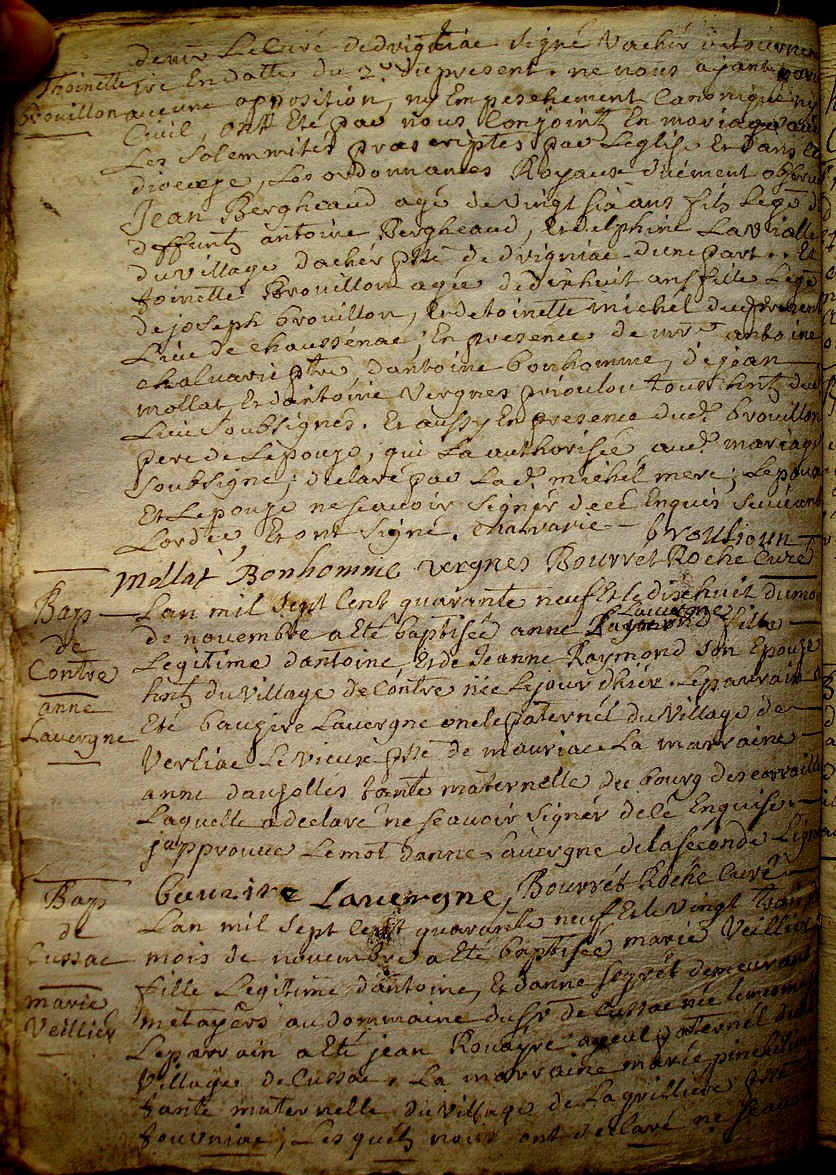 de mr Le Curé de drigniac signé Vacher
Thoinette
Brouillon
En datte du 2e du present. ne nous ajant
aucune opposition, ny Empeschement Canonique ny
Civil, ont Eté par nous Conjoints En mariage avec
Les solemnités prescriptes par Leglise Et dans ce
dioceze, Les ordonnances Royaux duement observées
Jean Bergheaud agé de vingt six ans fils Lege de
deffunts antoine Bergheaud, Et delphine Lavialle
du village dachér psse de drigniac dune part. Et
toinette Brouillon agée de dixhuit ans fille Lege
de joseph brouillon, Et de toinette michel du present
Lieu de chaussénac, En presence de mre antoine
chalvarie ptre dantoine bonhomme, de jean
mollat Et dantoine Vergnes prioulou tous hnts du
Lieu soubsignés. Et aussy En presence dud. brouillon
pere de Lepouze, qui La authorisée aud. mariage
soubsigne; declaré par Lad. michel mere; Lepoux
Et Lepouze ne scavoir signér de ce Enquis suivant
Lordce, Et ont signé. chalvarie - broulioun
mollat Bonhomme vergnes Bourret Roche Curé
Bap
de
Contre
anne
Lavergne
Lan mil sept Cent quarante neuf Et le dixhuit du mois
de novembre a Eté baptisée anne Lavergne fille
Legitime dantoine, Et de Jeanne Raymond son Epouze
hnts du village de Contre née Lejour dhiér. Leparrain a
Eté bauzire Lavergne oncle paternél du village de
Verliac Le vieux psse de mauriac La marraine
anne dauzolles tante maternelle du bourg descorrailles
Laquelle a declaré ne scavoir signér de ce Enquise.
japprouve Le mot danne Lavergne de la séconde Ligne
bauzire Lavergne, Bourret Roche Curé
Bap
de
Cussac
marie
Veillier
Lan mil sept Cent quarante neuf Et le vingt trois du
mois de novembre a Eté baptisée marie Veillier
fille Legitime dantoine, Et danne segrét demeurants
métayérs au dommaine du sr de Cussac née le mesme
Leparrain a Eté jean Rouayre ayeul paternél du
village de Cussac, La marraine marie
tante maternelle du village de Lagvilliere psse de
touvniac; Lesquels nous ont declaré ne scavoir